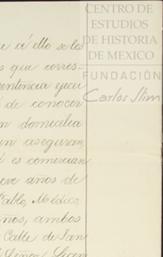 CENTRO DE
ESTUDIOS
DE HISTORIA
DE MEXICO
FUNDACIÓN
Carlos Slim
e á ello se les
s que corres-
sentencia ejecu
de conocer
n domicilia
n aseguran,
es comercian
eve años de
Calle, Médico,
ños, ambos
Calle de San